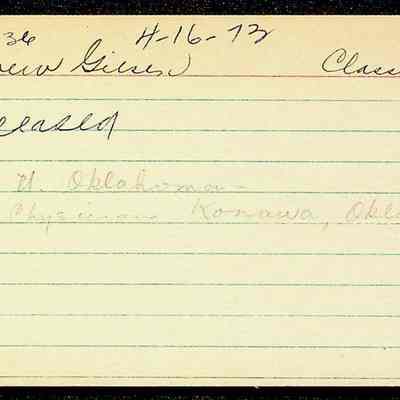 36 4-16-73
Class
eceased
U. Oklahoma-
Physician Konawa, Okla